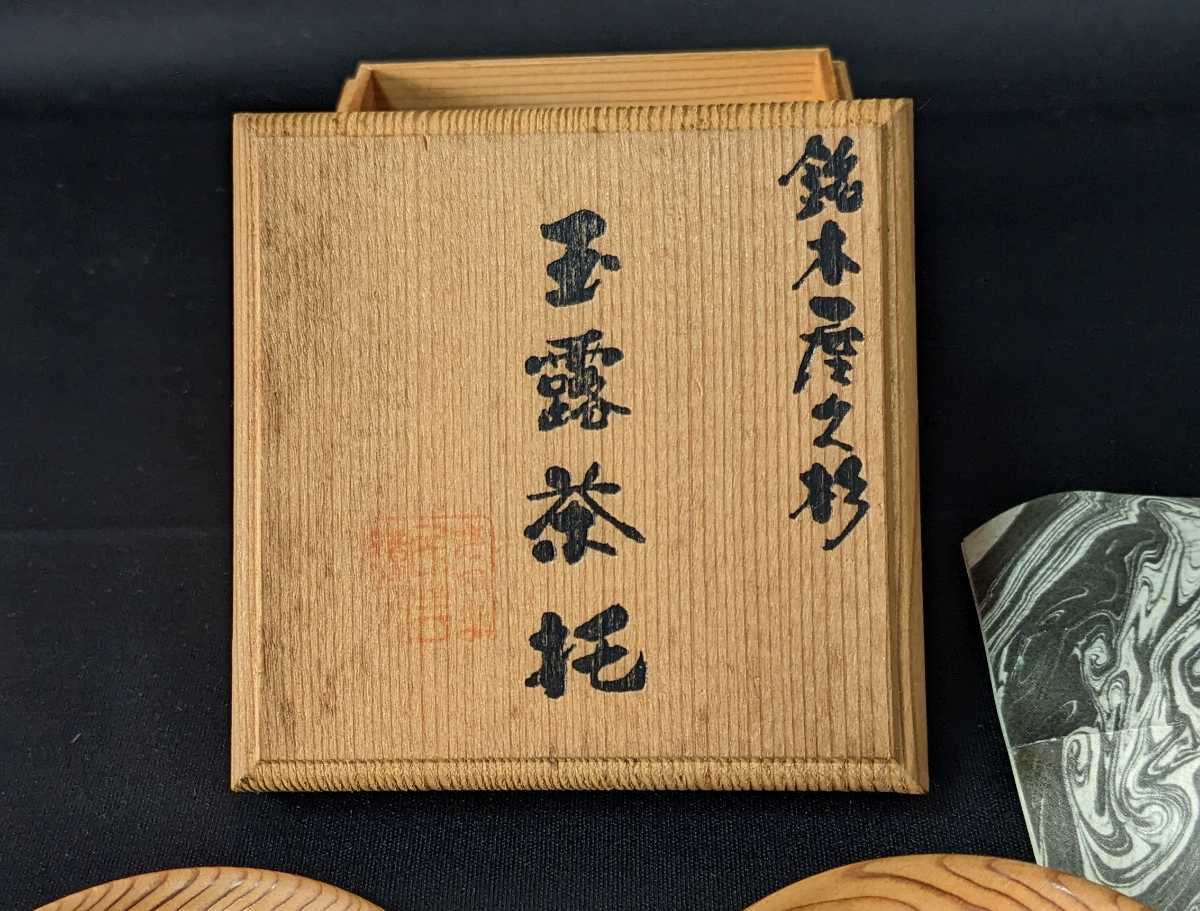 銘木屋久杉
玉露茶托